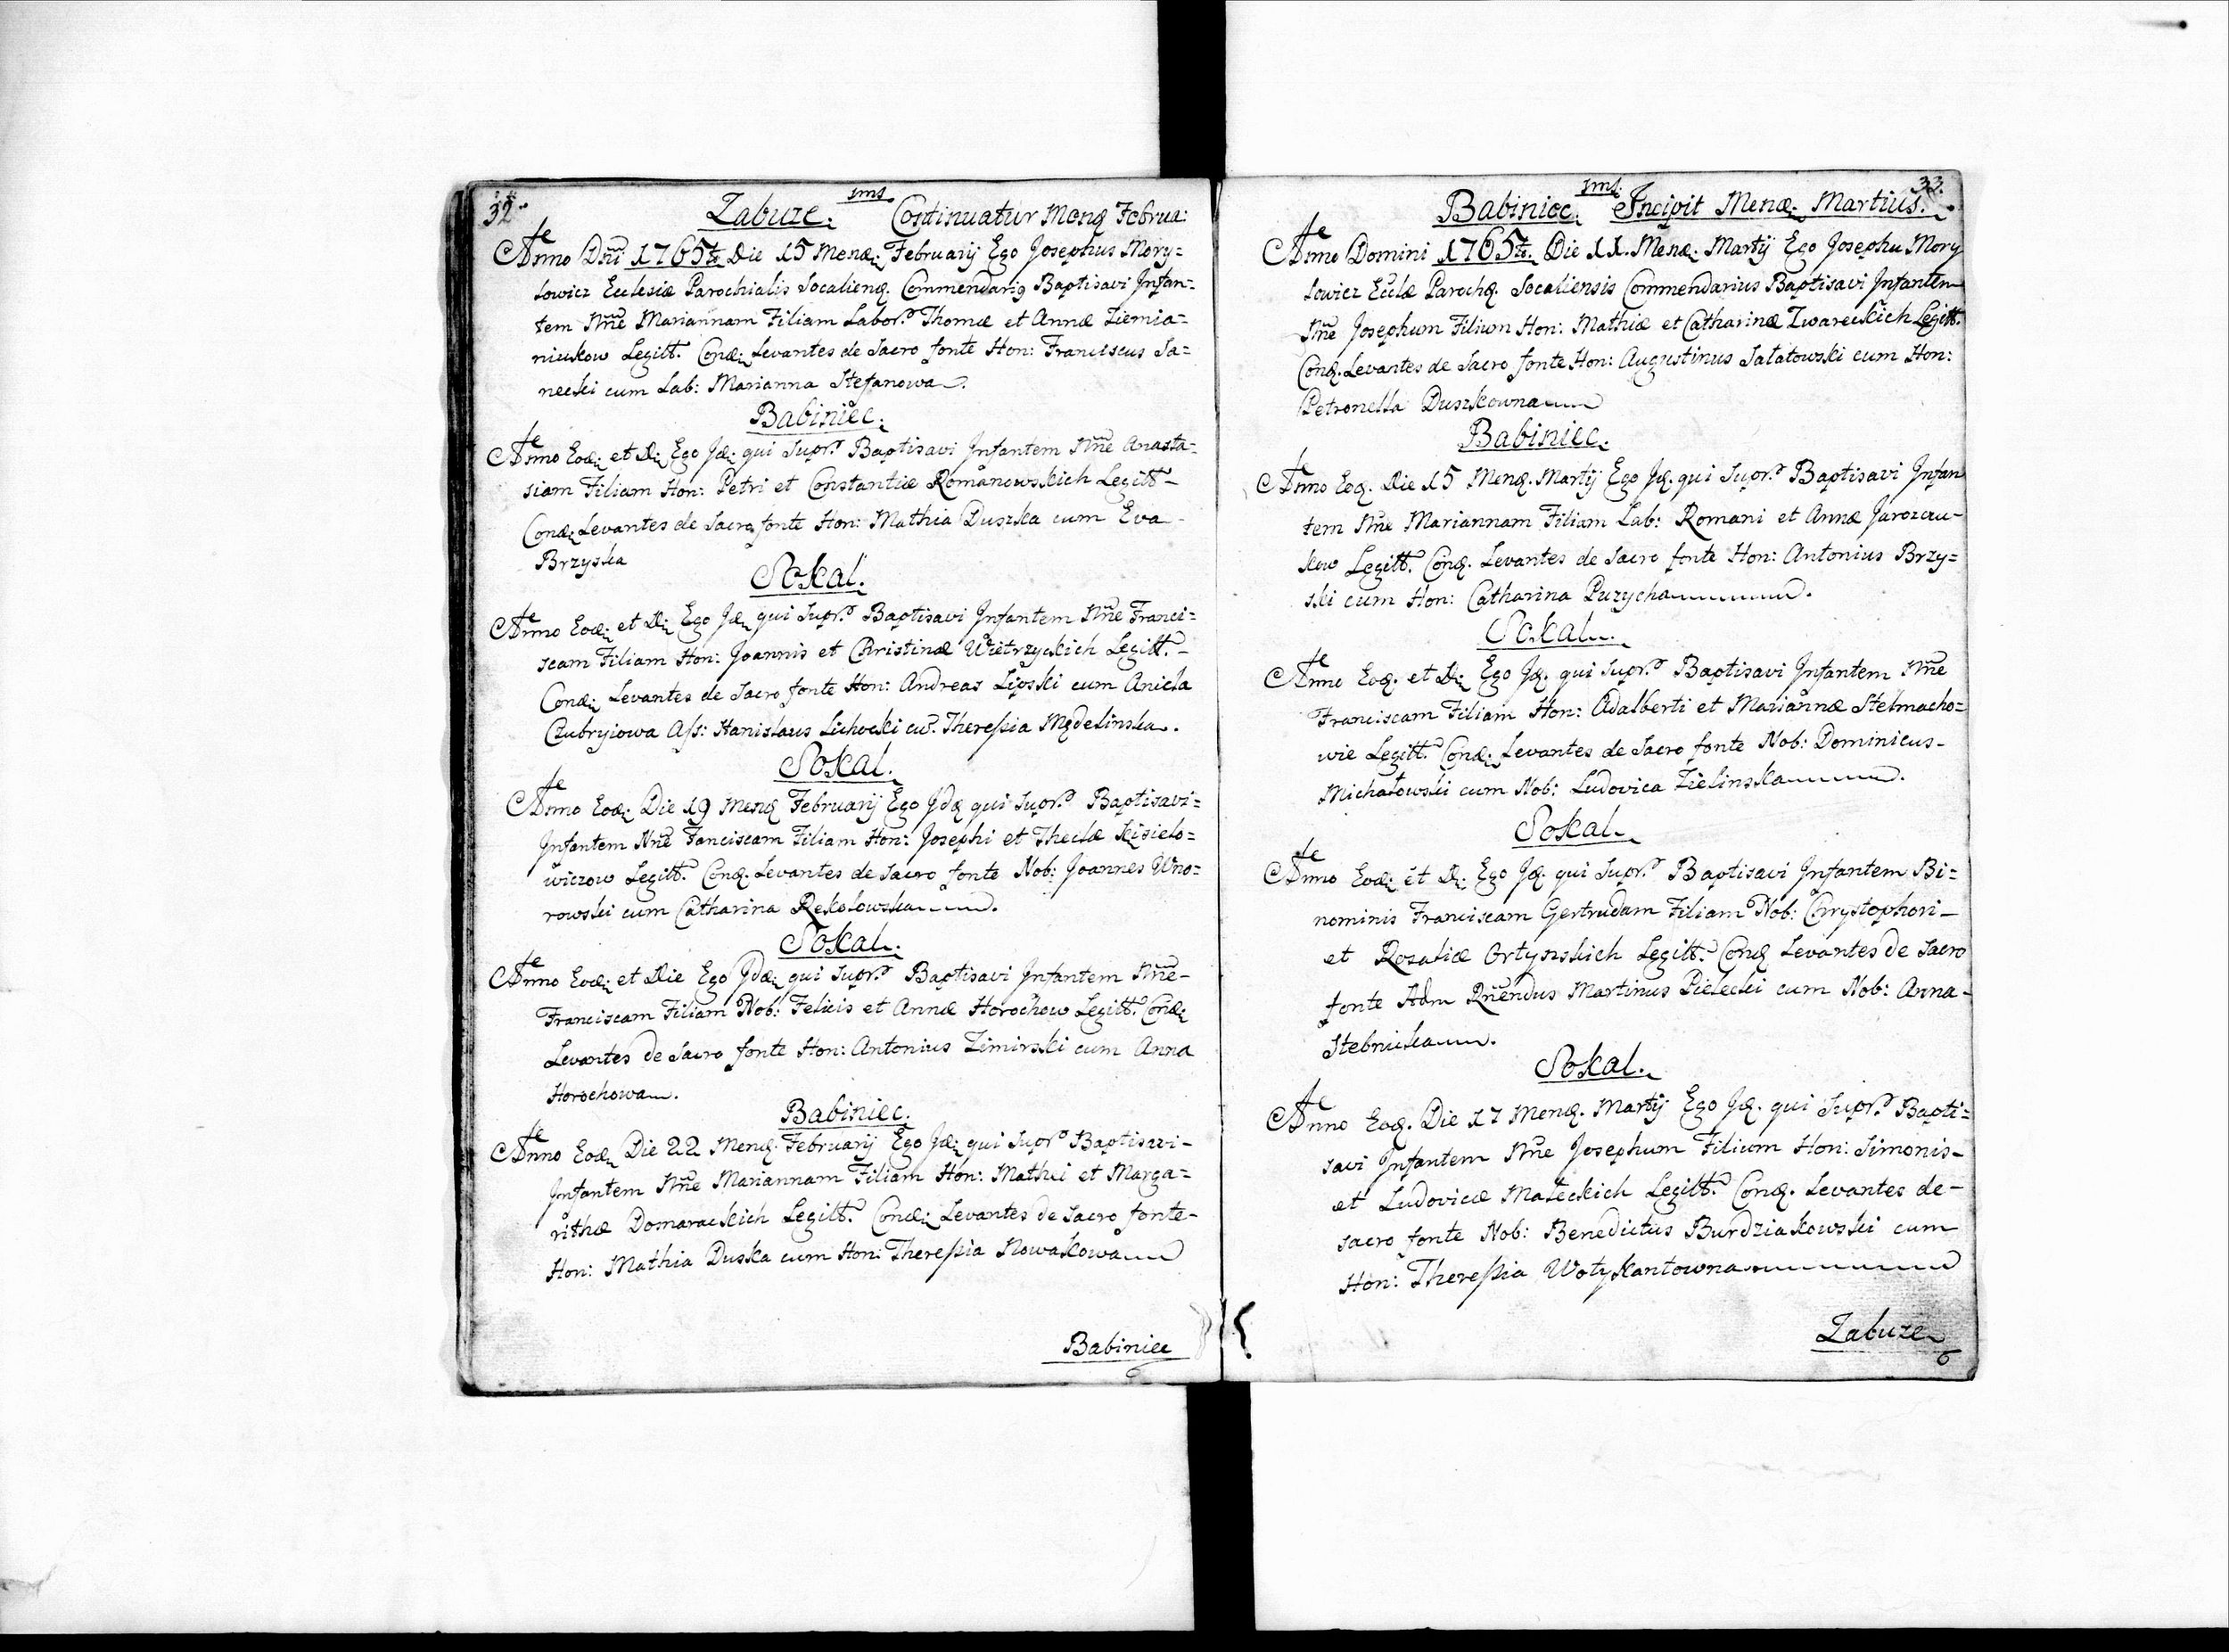 32.
Zabuze. 1ms. Continuatur Mensq Februa:
Anno Dnī 1765to Die 15 Mensq: Februarij Ego Josephus Mory=
lowicz Ecclesiæ Parochialis Socaliensq. Commendari9 Baptisavi Infan=
tem Nñe Mariannam Filiam Labor. Thomæ et Annæ Ziemia=
niukow Legitt. Conq: Levantes de Sacro fonte Hon: Franciscus Sa=
necki cum Lab: Marianna Stefanowa.
Babiniec.
Anno Eoq: et D: Ego Jq: qui Supr. Baptisavi Infantem Nñe Anasta=
siam Filiam Hon: Petri et Constantiæ Romanowskich Legitt-
Conq: Levantes de Sacro fonte Hon: Mathia Duszka cum Eva
Brzyska
Sokal.
Anno Eoq: et D: Ego Jq: qui Supr. Baptisavi Infantem Nñe Franci=
scam Filiam Hon: Joannis et Christinæ Wietrzyckich Legitt.-
Conq: Levantes de Sacro fonte Hon: Andreas Lipski cum Aniela
Czubryiowa Ass: Stanislaus Lichocki cu. Theressia Mędelinska.
Sokal.
Anno Eoq: Die 19 Mensq Februarij Ego Jdq qui Supr. Baptisavi=
Infantem Nñe Fanciscam Filiam Hon: Josephi et Theclæ Kisielo=
wiczow Legitt. Conq. Levantes de Sacro fonte Nob: Joannes Wno=
rowski cum Catharina Rekolowska.
Sokal.
Anno Eoq: et Die Ego Jdq: qui Supr. Baptisavi Infantem Nñe-
Franciscam Filiam Nob: Felicis et Annæ Horochow Legitt. Conq:
Levantes de Sacro fonte Hon: Antonius Zimirski cum Anna
Horochowa.
Babiniec.
Anno Eoq: Die 22 Mensq. Februarij Ego Jq: qui Supr. Baptisavi-
Infantem Nñe Mariannam Filiam Hon: Mathei et Marga=
rithæ Domarackich Legitt. Conq: Levantes de Sacro fonte-
Hon: Mathia Duska cum Hon: Theressia Nowakowa
Babiniec
33.
Babiniec. 1ms. Incipit Mensq. Martius.
Anno Domini 1765to. Die 11. Mensq: Martij Ego Josephu Mory
lowicz Eclæ Parochq. Socaliensis Commendarius Baptisavi Infantem
Nñe Josephum Filium Hon: Mathiæ et Catharinæ Zwareckich Legitt.
Conq. Levantes de Sacro fonte Hon: Augustinus Sałatowski cum Hon:
Petronella Duszkowna
Babiniec.
Anno Eoq. Die 15 Mensq. Martij Ego Jq. qui Supr. Baptisavi Infan
tem Nñe Mariannam Filiam Lab: Romani et Annæ Jarozczu-
kow Legitt. Conq. Levantes de Sacro fonte Hon: Antonius Brzy=
ski cum Hon: Catharina Puzycha.
Sokal.
Anno Eoq. et D: Ego Jq. qui Supr. Baptisavi Infantem Nñe
Franciscam Filiam Hon: Adalberti et Mariannæ Stelmacho=
wie Legitt. Conq: Levantes de Sacro fonte Nob: Dominicus-
Michałowski cum Nob: Ludovica Zielinska.
Sokal.
Anno Eoq: et D: Ego Jq. qui Supr. Baptisavi Infantem Bi=
nominis Franciscam Gertrudam Filiam Nob: Chrystophori-
et Rozaliæ Ortynskich Legitt. Conq Levantes de Sacro
fonte Adm Rñendus Martinus Pielecki cum Nob: Anna-
Stebnicka.
Sokal.
Anno Eoq. Die 17 Mensq. Martij Ego Jq. qui Supr. Bapti=
savi Infantem Nñe Josephum Filium Hon: Simonis-
et Ludovicæ Małeckich Legitt. Conq. Levantes de-
sacro fonte Nob: Benedictus Burdziakowski cum
Hon: Theressia Wotykantowna
Zabuze
6